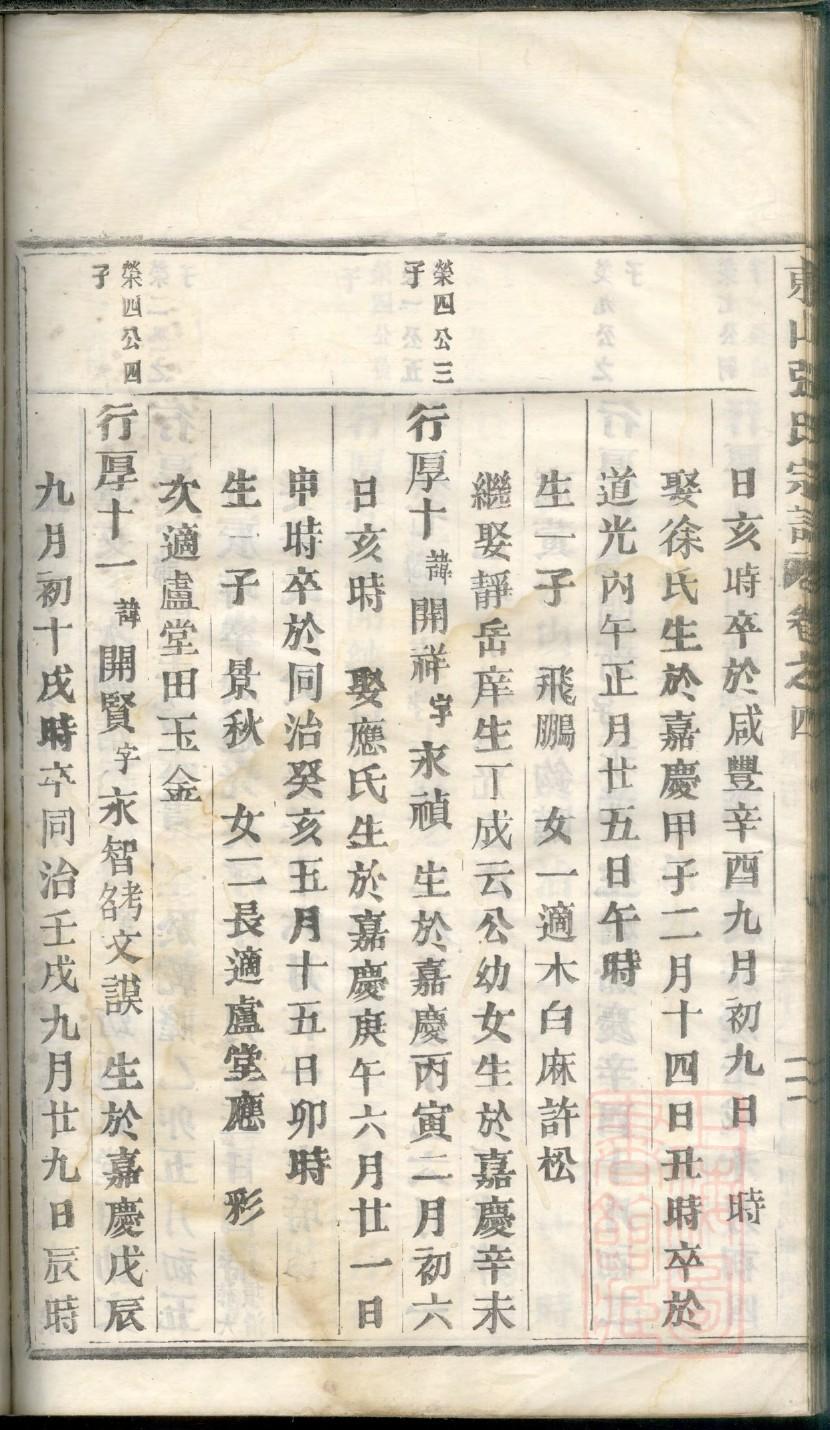 東山張氏宗譜 卷之四
日亥時卒於咸豐辛酉九月初九日 時
娶徐氏生於嘉慶甲子二月十四日丑時卒於
道光丙午正月廿五日午時
生一子 飛鵬 女一適木白麻許松
繼娶靜岳庠生丁成云公幼女生於嘉慶辛未
榮四公三
子
行厚十諱開祥字永禎 生於嘉慶丙寅二月初六
日亥時 娶應氏生於嘉慶庚午六月廿一日
申時卒於同治癸亥五月十五日卯時
生一子景秋 女二長適盧堂應 彩
次適盧堂田玉金
榮四公四
子
行厚十一諱開賢字永智號文謨 生於嘉慶戊辰
九月初十戌時卒同治壬戌九月廿九日辰時